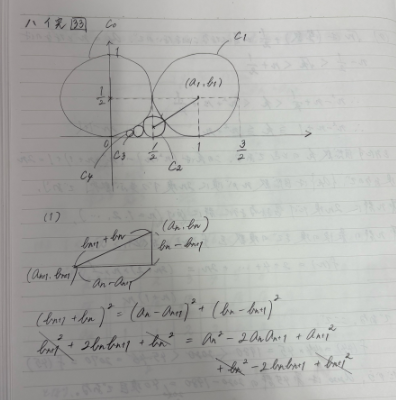 33
C₀
C₁
1
1/2
(a₁, b₁)
0
C₃
1/2
1
3/2
C₄
C₂
(1)
(an, bn)
bn+1 + bn
bn - bn+1
(an+1, bn+1)
an - an+1
(bn+1 + bn)² = (an - an+1)² + (bn - bn+1)²
bn+1² + 2bnbn+1 + bn² = an² - 2anan+1 + an+1²
+ bn² - 2bnbn+1 + bn+1²